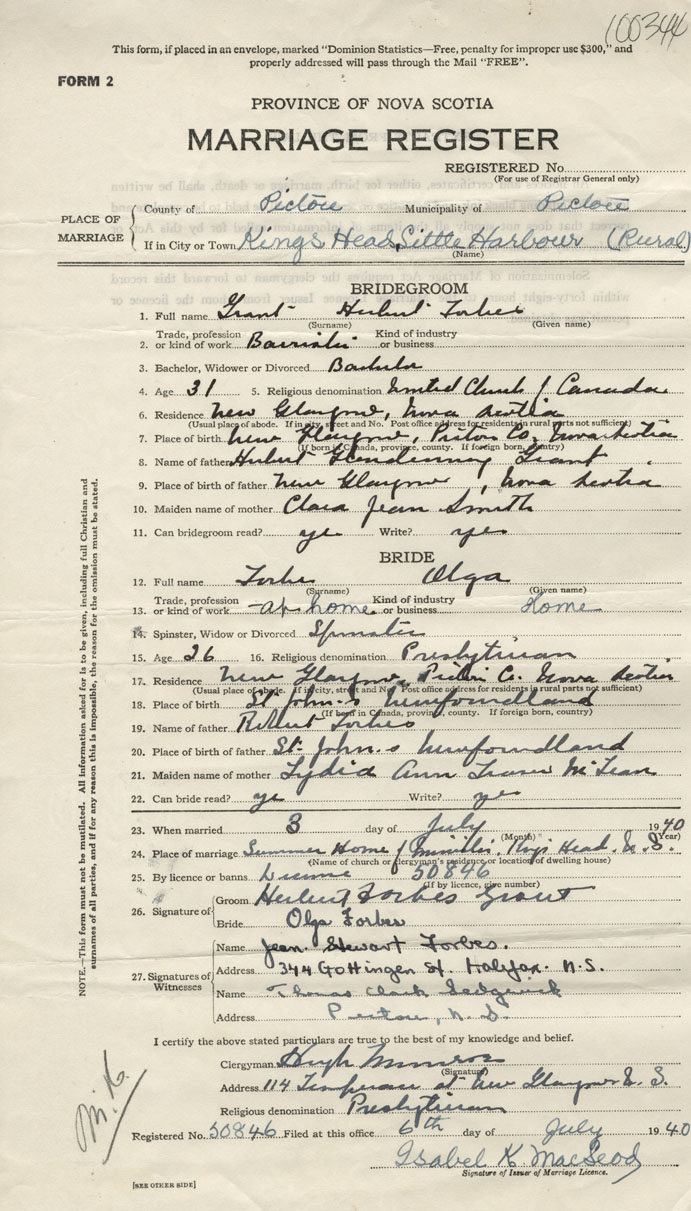 100344
This form, if placed in an envelope, marked "Dominion Statistics—Free, penalty for improper use $300," and
properly addressed will pass through the Mail "FREE".
FORM 2
PROVINCE OF NOVA SCOTIA
MARRIAGE REGISTER
REGISTERED No.
(For use of Registrar General only)
PLACE OF MARRIAGE
County of Pictou Municipality of Pictou
If in City or Town Kings Head, Little Harbour (Rural)
(Name)
BRIDEGROOM
1. Full name Grant Herbert Forbes
(Surname) (Given name)
2. Trade, profession or kind of work Barrister Kind of industry or business
3. Bachelor, Widower or Divorced Bachelor
4. Age 31 5. Religious denomination United Church of Canada
6. Residence New Glasgow, Nova Scotia
(Usual place of abode. If in city, street and No. Post office address for residents in rural parts not sufficient)
7. Place of birth New Glasgow, Pictou Co, Nova Scotia
(If born in Canada, province, county. If foreign born, country)
8. Name of father Herbert Grant
9. Place of birth of father New Glasgow, Nova Scotia
10. Maiden name of mother Clara Jean Smith
11. Can bridegroom read? yes Write? yes
BRIDE
12. Full name Forbes Olga
(Surname) (Given name)
13. Trade, profession or kind of work at home Kind of industry or business Home
14. Spinster, Widow or Divorced Spinster
15. Age 26 16. Religious denomination Presbyterian
17. Residence New Glasgow, Pictou Co. Nova Scotia
(Usual place of abode. If in city, street and No. Post office address for residents in rural parts not sufficient)
18. Place of birth St. John's Newfoundland
(If born in Canada, province, county. If foreign born, country)
19. Name of father Robert Forbes
20. Place of birth of father St. John's Newfoundland
21. Maiden name of mother Lydia Ann Fraser McLean
22. Can bride read? yes Write? yes
23. When married 3 day of July 1940
(Month) (Year)
24. Place of marriage Summer Home of minister, Kings Head, N.S.
(Name of church or clergyman's residence or location of dwelling house)
25. By licence or banns License 50846
(If by licence, give number)
26. Signature of
Groom Herbert Forbes Grant
Bride Olga Forbes
27. Signatures of Witnesses
Name Jean Stewart Forbes.
Address 344 Gottingen St. Halifax. N.S.
Name Thomas Clark Sedgwick
Address Pictou, N.S.
I certify the above stated particulars are true to the best of my knowledge and belief.
Clergyman Hugh Munroe
(Signature)
Address 114 Temperance St New Glasgow N.S.
Religious denomination Presbyterian
Registered No. 50846 Filed at this office 6th day of July 1940
Isabel K MacLeod
Signature of Issuer of Marriage Licence.
[SEE OTHER SIDE]
NOTE.—This form must not be mutilated. All information asked for is to be given, including full Christian and
surnames of all parties, and if for any reason this is impossible, the reason for the omission must be stated.